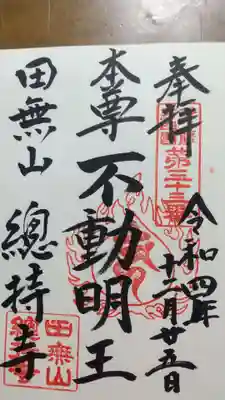 奉拝
第三十三番
令和四年
十二月廿五日
本尊 不動明王
田無山
總持寺
田無山
總持寺